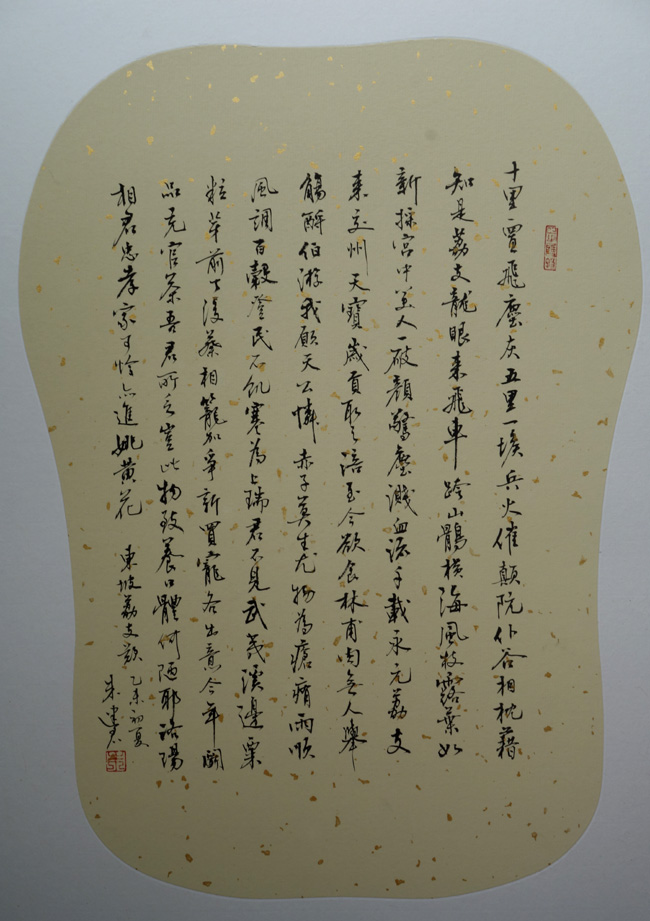 十里一置飛塵灰五里一堠兵火催顛阬仆谷相枕藉
知是荔支龍眼来飛車跨山鶻橫海風枝露葉如
新採宮中美人一破顏驚塵濺血流千載永元荔支
来交州天寶歲貢取之涪至今欲食林甫肉無人舉
觴酹伯游我願天公憐赤子莫生尤物為瘡痏雨順
風調百穀登民不飢寒為上瑞君不見武夷溪邊粟
粒芽前丁後蔡相籠加爭新買寵各出意今年鬭
品充官茶吾君所乏豈此物致養口體何陋耶洛陽
相君忠孝家可怜亦進姚黃花 東坡荔支歎 乙未初夏
朱建